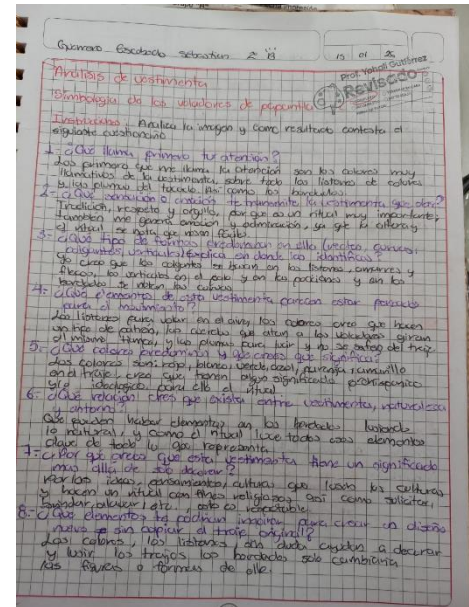 Guerrero Escobedo Sebastian 2 "B" 13 01 26
Prof. Yahali Gutiérrez
Revisado
Análisis de vestimenta
Simbología de los voladores de papantla
Instrucciones: Analiza la imagen y como resultado contesta el
siguiente cuestionario
1- ¿Qué llama primero tu atención?
Los primero que me llama la atención son los colores muy
llamativos de la vestimenta, sobre todo los listones de colores
y las plumas del tocado. Asi como los bordados
2- ¿Qué sensación o emoción te transmite la vestimenta que
Tradición, respeto y orgullo, por que es un ritual muy importante,
tambien me genera emoción y admiración, ya que la altura y
el ritual se nota que no es fácil.
3- ¿Qué tipo de formas predominan en ella (rectas, curvas,
colgantes, verticales) Explica en donde las identificas?
Yo creo que los colgantes se basan en los listones, y
flecos, los verticales en el palo y en los y en los
bordados se notan las curvas
4- ¿Qué elementos de esta vestimenta parecen estar pensados
para el movimiento?
Los listones para volar en el aire, los colores creo que hacen
un tipo de patrón, las cuerdas que atan a los voladores giran
al mismo tiempo, y las plumas para lucir y no se salen del traje
5- ¿Qué colores predominan y qué crees que significa?
Los colores son: rojo, blanco, verde, azul, naranja y amarillo
en el traje creo que tienen algun significado prehispanico
y/o ideologico para ello el ritual
6- ¿Qué relación crees que exista entre vestimenta, naturaleza
y entorno?
Que pueden haber elementos en los bordados
lo natural, y como el ritual luce todos esos elementos
clave de todo lo que representa
7- ¿Por qué crees que esta vestimenta tiene un significado
mas allá de solo decorar?
Por las ideas, pensamientos, culturas que las culturas
y hacen un ritual con fines religiosos, asi como solicitar,
brindar, alabar, etc., esto es respetable.
8- ¿Qué elementos te podrian inspirar para crear un diseño
nuevo sin copiar el traje original?
Los colores, los listones sin duda ayudan a decorar
y lucir los trajes los bordados solo cambiaria
las figuras o formas de ello.